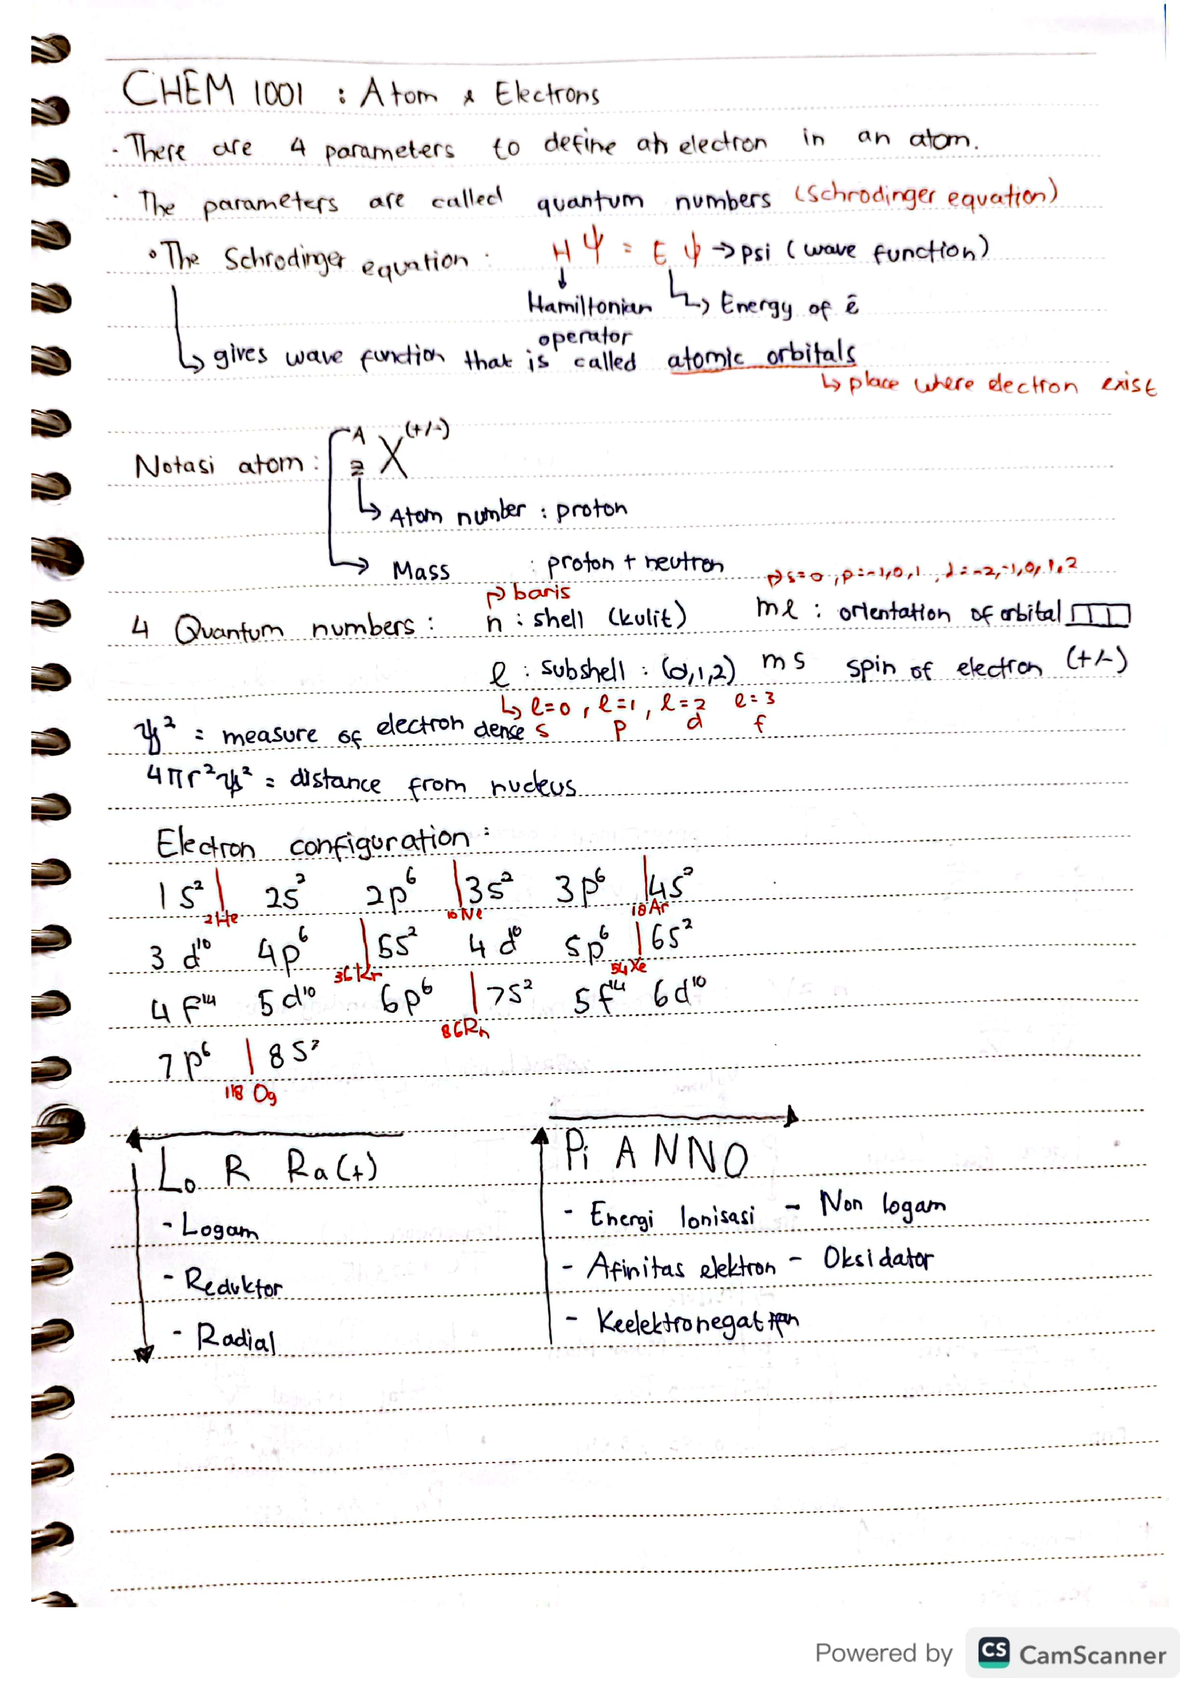 CHEM 1001 : Atom & Electrons
· There are 4 parameters to define an electron in an atom.
· The parameters are called quantum numbers (Schrodinger equation)
• The Schrodinger equation : H Ψ = E ψ → psi (wave function)
↓ Hamiltonian operator ↳ Energy of ē
↳ gives wave function that is called atomic orbitals
↳ place where electron exist
Notasi atom : A Z X (+/-)
↳ Atom number : proton
→ Mass : proton + neutron
↱ s=0, p=-1,0,1, d=-2,-1,0,1,2
↱ baris
4 Quantum numbers : n : shell (kulit) ml : orientation of orbital
l : subshell : (0,1,2) ms spin of electron (+/-)
↳ l=0, l=1, l=2 l=3
s p d f
ψ² = measure of electron dense
4πr²ψ² = distance from nucleus
Electron configuration :
1s² | 2s² 2p⁶ | 3s² 3p⁶ | 4s²
2He 10Ne 18Ar
3d¹⁰ 4p⁶ | 5s² 4d¹⁰ 5p⁶ | 6s²
36Kr 54Xe
4f¹⁴ 5d¹⁰ 6p⁶ | 7s² 5f¹⁴ 6d¹⁰
86Rn
7p⁶ | 8s²
118 Og
Lo R Ra(+)
- Logam
- Reduktor
- Radial
Pi A NNO
- Energi Ionisasi - Non logam
- Afinitas elektron - Oksidator
- Keelektronegatifan
Powered by CS CamScanner